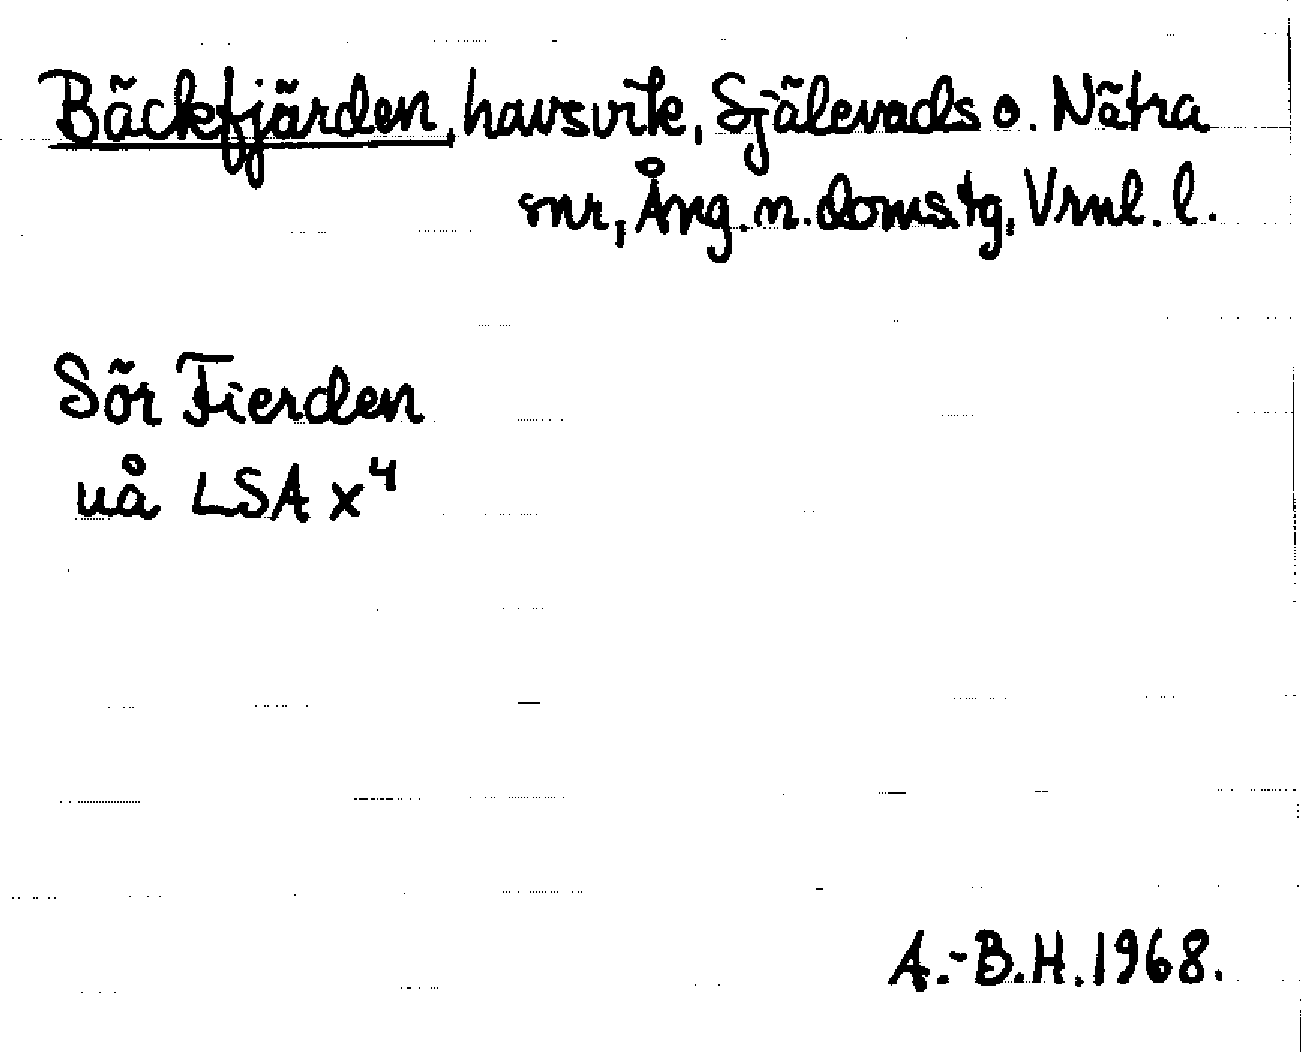 Bäckfjärden, havsvik, Själevads o. Nätra
snr, Ång. n. domstg, Vrnl. l.
Sör Fierden
uå LSA x⁴
A.-B.H. 1968.